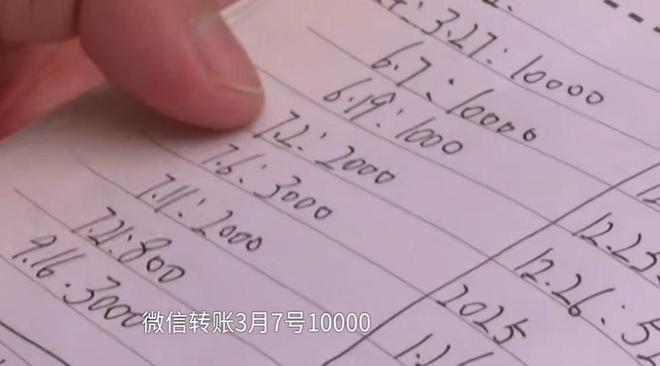 3.27:10000
6.7:10000
6.19:1000
7.2:2000
7.6:3000
7.11:2000
7.21:800
9.16.3000
12.25
12.26:5
2025
1.2
微信转账3月7号10000